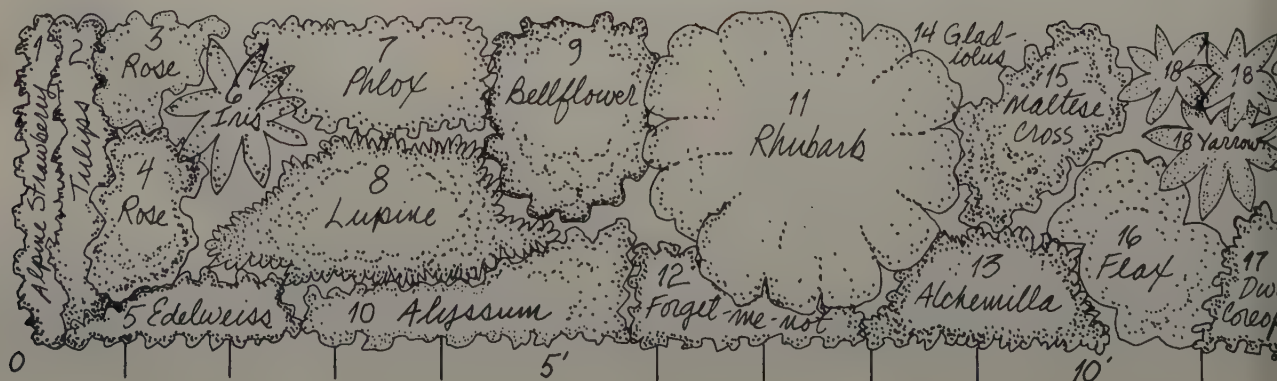 1 Alpine Strawberry
2 Tulips
3
Rose
4
Rose
5 Edelweiss
6
Iris
7
Phlox
8
Lupine
9
Bellflower
10 Alyssum
11
Rhubarb
12
Forget-me-not
13
Alchemilla
14 Glad-
iolus
15
Maltese
Cross
16
Flax
17
18
18
18 Yarrow
0
5'
10'